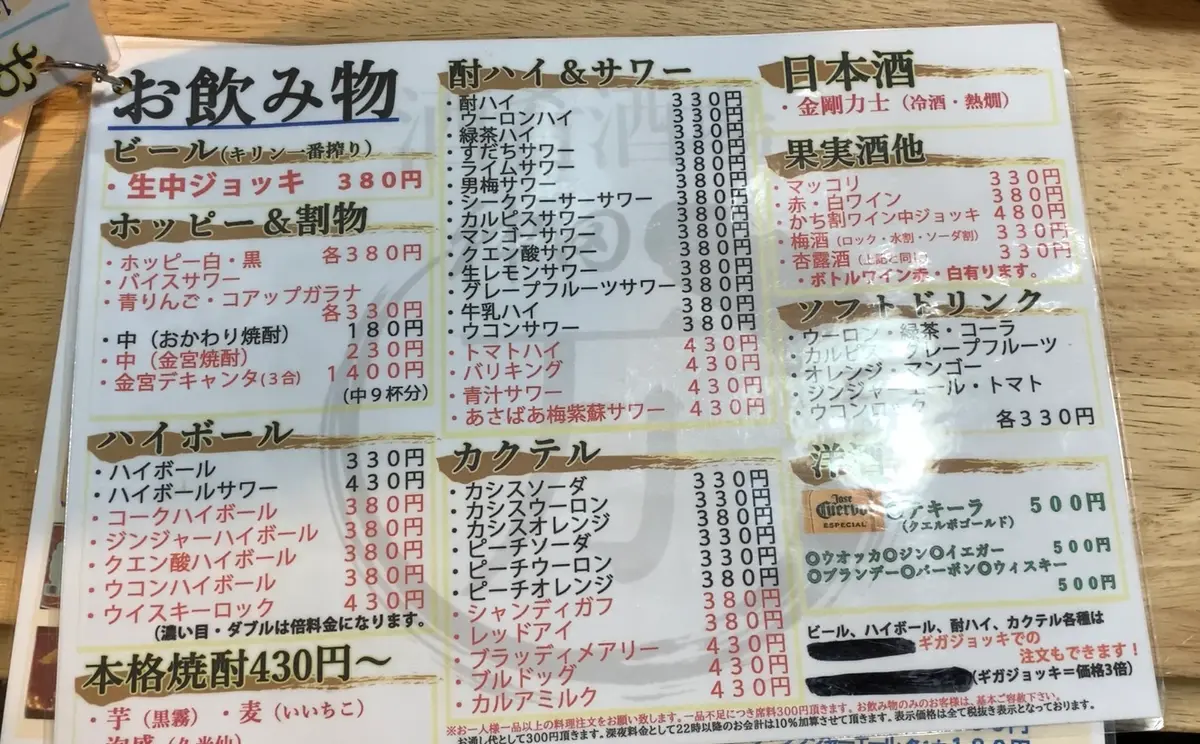 お飲み物
ビール(キリン一番搾り)
・生中ジョッキ 380円
ホッピー＆割物
・ホッピー白・黒 各380円
・バイスサワー
・青りんご・コアップガラナ
各330円
・中（おかわり焼酎） 180円
・中（金宮焼酎） 230円
・金宮デキャンタ(3合) 1400円
(中9杯分)
ハイボール
・ハイボール 330円
・ハイボールサワー 430円
・コークハイボール 380円
・ジンジャーハイボール 380円
・クエン酸ハイボール 380円
・ウコンハイボール 380円
・ウイスキーロック 430円
(濃い目・ダブルは倍料金になります。
本格焼酎430円～
・芋（黒霧） ・麦（いいちこ）
酎ハイ＆サワー
・酎ハイ 330円
・ウーロンハイ 330円
・緑茶ハイ 330円
・すだちサワー 380円
・ライムサワー 380円
・男梅サワー 380円
・シークワーサーサワー 380円
・カルピスサワー 380円
・マンゴーサワー 380円
・クエン酸サワー 380円
・生レモンサワー 380円
・グレープフルーツサワー 380円
・牛乳ハイ 380円
・ウコンサワー 380円
・トマトハイ 430円
・バリキング 430円
・青汁サワー 430円
・あさばあ梅紫蘇サワー 430円
カクテル
・カシスソーダ 330円
・カシスウーロン 330円
・カシスオレンジ 380円
・ピーチソーダ 330円
・ピーチウーロン 330円
・ピーチオレンジ 380円
・シャンディガフ 380円
・レッドアイ 380円
・ブラッディメアリー 430円
・ブルドッグ 430円
・カルアミルク 430円
日本酒
・金剛力士（冷酒・熱燗）
果実酒他
・マッコリ 330円
・赤・白ワイン 380円
・かち割ワイン中ジョッキ 480円
・梅酒（ロック・水割・ソーダ割） 330円
・杏露酒（上記と同じ） 330円
・ボトルワイン赤・白有ります。
ソフトドリンク
・ウーロン・緑茶・コーラ
・カルピス・グレープフルーツ
・オレンジ・マンゴー
・ジンジャーエール・トマト
・ウコンロック
各330円
洋
Jose
Cuervo
ESPECIAL
テキーラ 500円
(クエルボゴールド)
◎ウオッカ◎ジン◎イエガー 500円
◎ブランデー◎バーボン◎ウィスキー
500円
ビール、ハイボール、酎ハイ、カクテル各種は
ギガジョッキでの
注文もできます！
(ギガジョッキ＝価格3倍)
※お一人様一品以上の料理注文をお願い致します。一品不足につき席料300円頂きます。お飲み物のみのお客様は、基本ご容赦下さい。
お通し代として300円頂きます。深夜料金として22時以降のお会計は10%加算させて頂きます。表示価格は全て税抜き表示となっております。